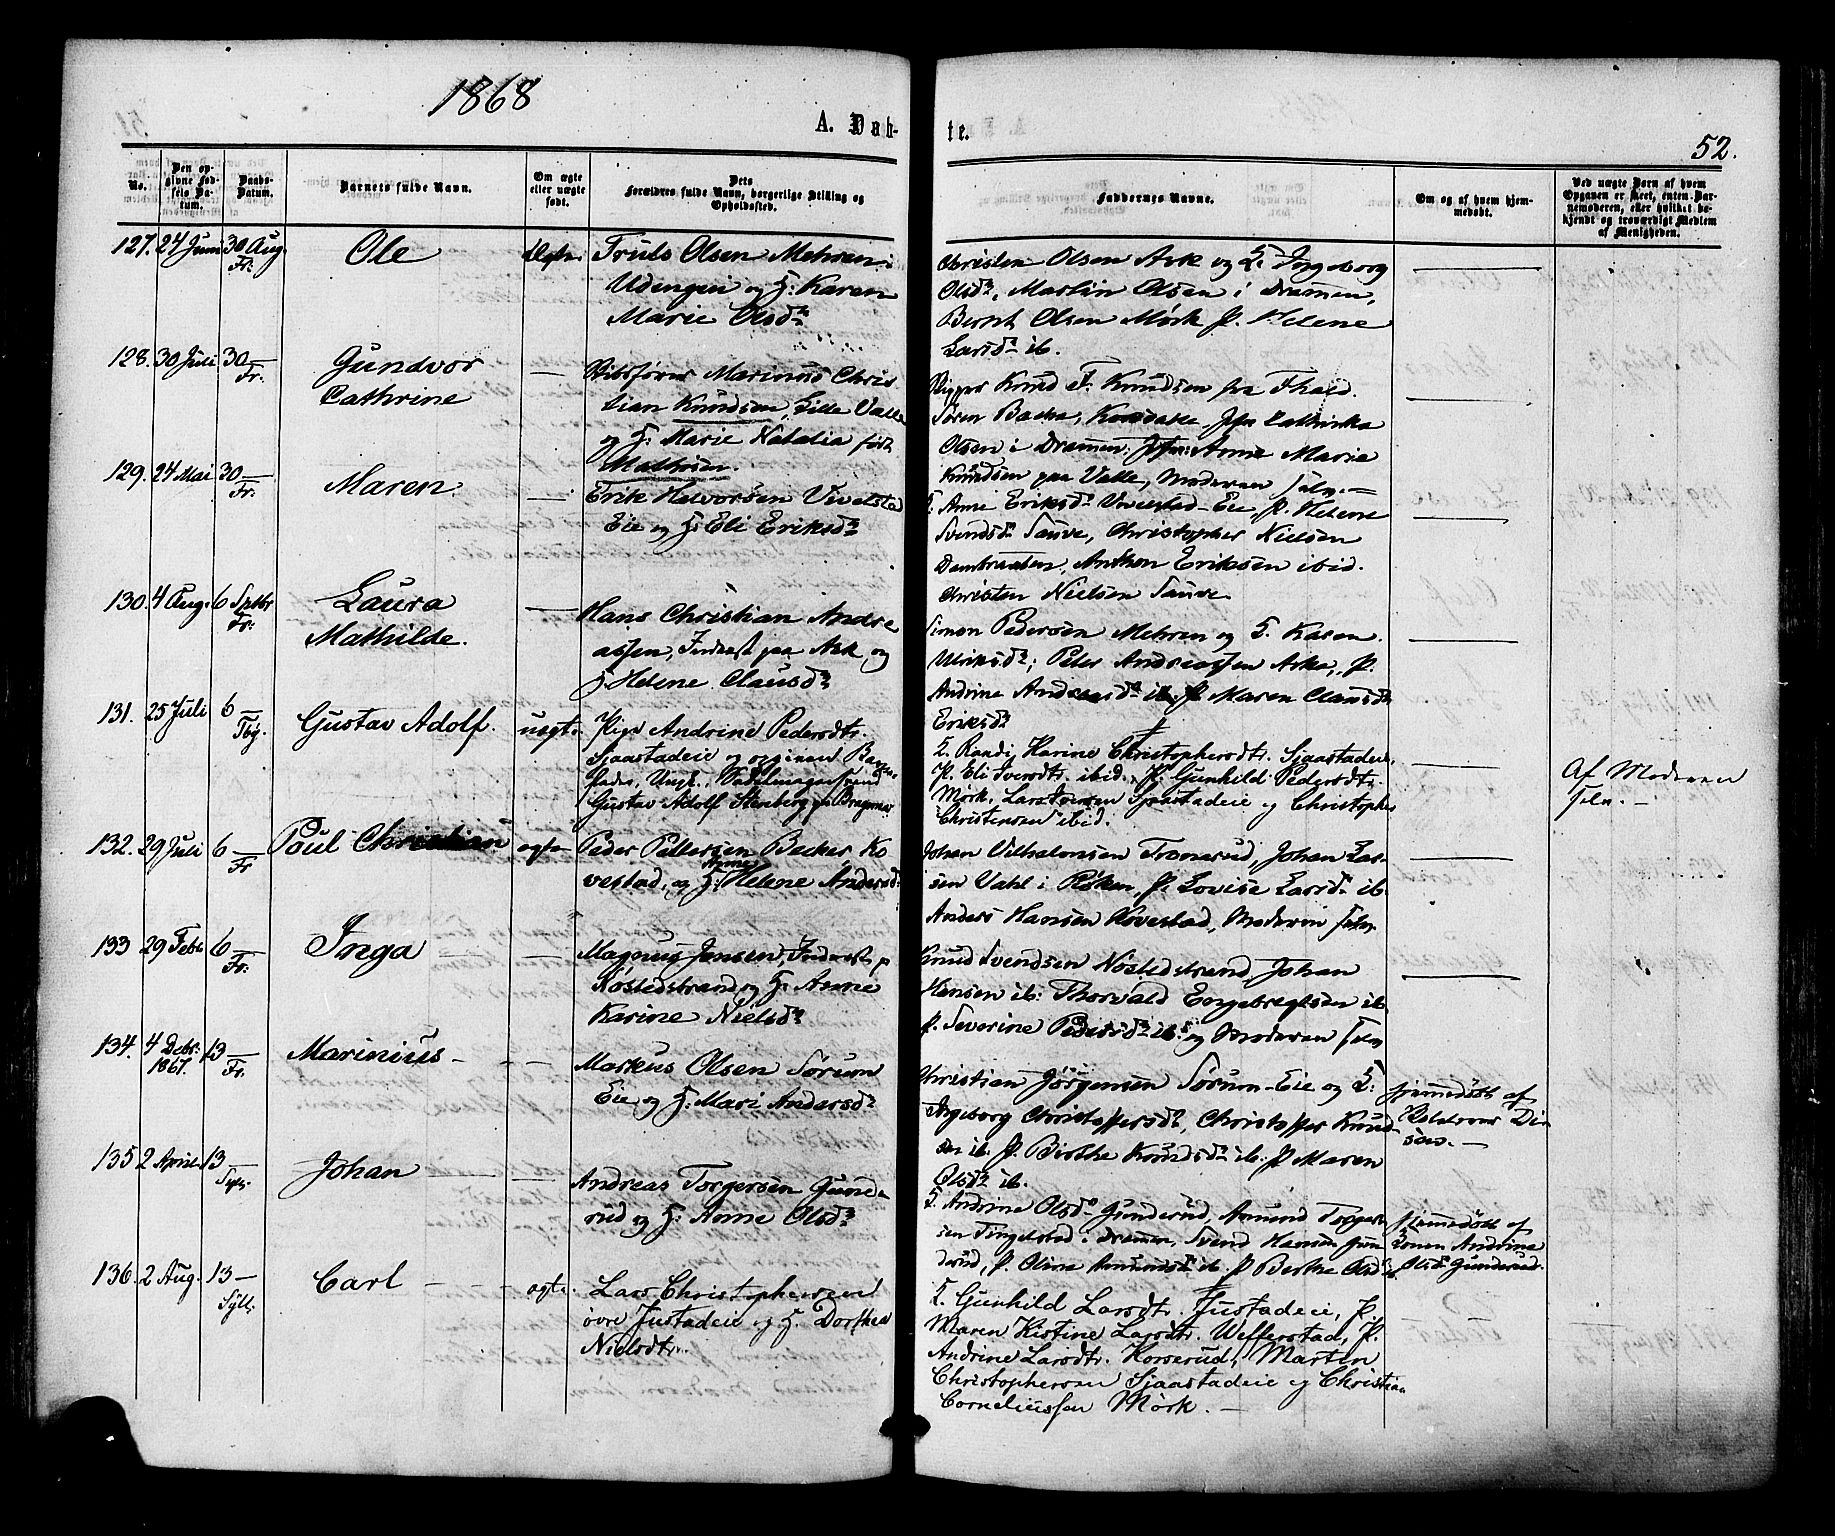 1868
A. Døb-
te.
52.
No.
Den op-
givne Fød-
sels Da-
tum.
Daabs-
Datum.
Barnets fulde Navn.
Om ægte
eller uægte
født.
Dets
Forældres fulde Navn, borgerlige Stilling og
Opholdssted.
Faddernes Navne.
Om og af hvem hjem-
medøbt.
Ved uægte Børn af hvem
Opgaven er skeet, enten Bar-
nemoderen, eller hvilket be-
kjendt og troværdigt Medlem
af Menigheden.
127. 24 Juni 30 Aug. Fr:
Ole
Truls Olsen Mehren
Udengen og H: Karen
Marie Olsdr
Christen Olsen Ask og H. Ingeborg
Olsdr, Martin Olsen i Drammen,
Bernt Olsen Mørk P. Helene
Larsdr ib.
128. 30 Juli 30 — Fr:
Gundvor
Cathrine
—
Skibsfører Marinus Chris
tian Knudsen, Lille Valle
og H: Marie Natalia født
Mathisen.
Skipper Knud F. Knudsen
Søren Backe, Jfr Cathinka
Olsen i Drammen, Jfr: Anne Marie
Knudsen paa Valle, Moderen selv.—
129. 24 Mai 30 — Fr:
Maren
—
Erik Halvorsen Vivelstad
Eie og H: Eli Eriksdr
H. Anne Eriksdr Vivelstad-Eie, P. Helene
Svendsdr Sauve, Christopher Nielsen
Dambraaten, Anthon Eriksen ibid.
Christen Nielsen Sauve.
130. 4 Aug. 6 Septbr Fr:
Laura
Mathilde.
—
Hans Christian Andre
assen, Inderst paa Ask og
H Helene Clausdr
Simon Pedersen Mehren og H. Karen
Ulriksdr; Peter Andreassen Aska, P.
Andrine Andreasdr ib. P Maren Clausdr
Eriksdr
131. 25 Juli 6 —
Gustav Adolf.
uægte
Pige Andrine Pedersdtr.
Sjaastadeie og opgiven Barne-
fader, Ungk.
Gustav Adolf Stenberg paa Bragernæs
H. Randi Karine Christophersdtr. Sjaastadeie,
P. Eli Iversdtr. ibid., P. Gunhild Pedersdtr.
Mørk, Lars Iversen Sjaastadeie og Christopher
Christensen ibid.
Af Moderen
selv. —
132. 29 Juli 6 — Fr
Poul Christian
ægte
Peder Pettersen Backer, Ko
vestad, og H: Anne Helene Andersdr
Johan Vilhelmsen Tronerud, Johan Lar-
sen Vahl i Røken, P. Lovise Larsdr ib.
Anders Hansen Kovestad, Moderen selv
133 29 Febr 6 — Fr:
Inga
— —
Magnus Jensen, Inderst p
Nøstedstrand og H: Anne
Karine Nielsdr
Knud Svendsen Nøstedstrand, Johan
Hansen ib: Thorvald Engebregtsen ib.
P. Severine Pedersdr ib. og Moderen selv
134. 4 Debr. 1867. 13 — Fr.
Marinius —
— —
Markus Olsen Sørum
Eie og H: Mari Andersdr
Christian Jørgensen Sørum-Eie og H:
Ingeborg Christoffersdr, Christoffer Knud-
sen ib. P. Birthe Knudsdr ib. P Maren
Olsdr ib.
hjemmedøbt af
135 2 April 13 — Sylt.
Johan
— —
Andreas Torgersen Gunde-
rud og H: Anne Olsdr
H. Andrine Olsdr Gunderud, Amund Torger-
sen Tingelstad i Drammen, Svend Hansen Gun
derud, P. Oline Amundsdr ib. P Berthe Olsdr ib.
hjemmedøbt af
Konen Andrine
Olsdr Gunderud.
136. 2 Aug. 13 — Sylt.
Carl
ægte.
Lars Christophersen
øvre Justadeie og H. Dorthea
Nielsdtr.
H. Gunhild Larsdtr. Justadeie, P.
Maren Kistine Larsdtr. Wefferstad, P.
Andrine Larsdtr. Korserud, Martin
Christophersen Sjaastadeie og Christian
Corneliussen Mørk. —